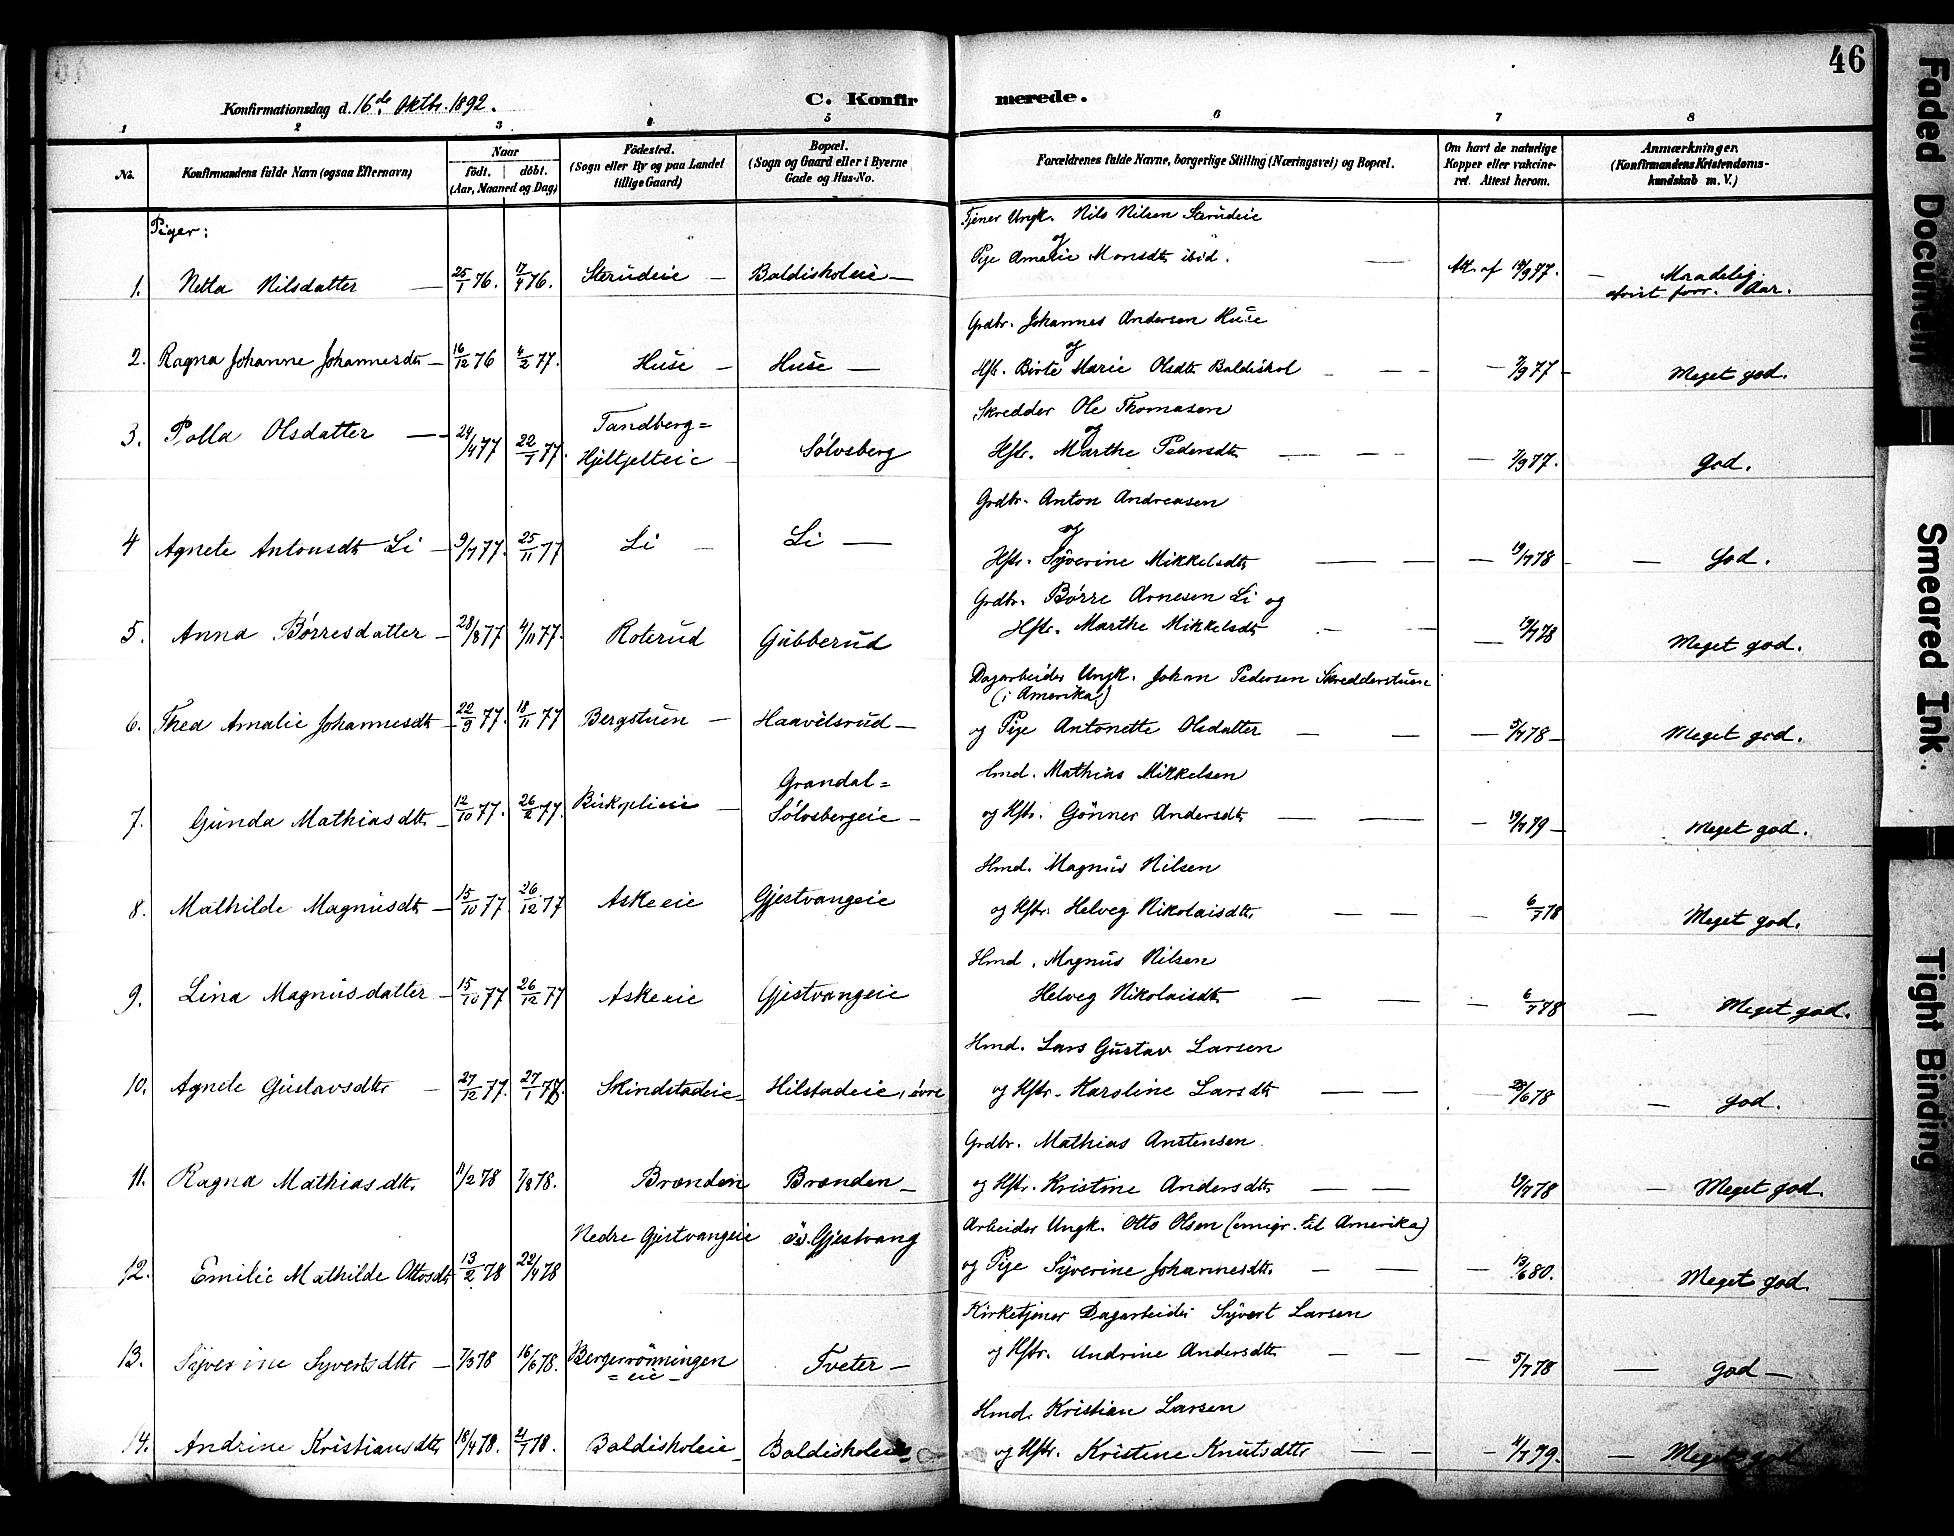 46
Konfirmationsdag d. 16de Oktbr. 1892.
C. Konfirmerede.
1 2 3 4 5 6 7 8
No.
Konfirmandens fulde Navn (ogsaa Efternavn)
Naar
født. døbt.
(Aar, Maaned og Dag)
Födested.
(Sogn eller By og paa Landet
tillige Gaard)
Bopæl.
(Sogn og Gaard eller i Byerne
Gade og Hus-No.
Forældrenes fulde Navne, borgerlige Stilling (Næringsvei) og Bopæl.
Om havt de naturlige
Kopper eller vakcine-
ret. Attest herom.
Anmærkninger.
(Konfirmandens Kristendoms-
kundskab m. V.)
Piger:
Tjener Ungk. Nils Nilsen Sterudeie
og
Pige Amalie Monsdtr ibid. —
1. Netta Nilsdatter — 25/1 76. 17/4 76. Sterudeie — Baldiskoleie — Att. af 18/9 77. — Maadelig.
afvist forr. Aar.
Grdbr. Johannes Andersen Huse
og
2. Ragna Johanne Johannesdtr — 16/12 76 4/2 77. Huse — Huse — Hstr. Birte Marie Olsdtr Baldiskol — — 7/9 77 — Meget god.
Skredder Ole Thomasen
og
3. Polla Olsdatter — 24/4 77 22/7 77. Tandberg=
Hjeltjelteie — Sølvsberg Hstr. Marthe Pedersdtr — — 7/9 77. God.
Grdbr. Anton Andreasen
og
4 Agnete Antonsdtr Li — 9/7 77. 25/11 77 Li — Li — Hstr. Syverine Mikkelsdtr — — 19/7 78 — God.
Grdbr. Børre Arnesen Li og
5. Anna Børresdatter — 28/8 77 4/11 77. Roterud Gubberud Hstr. Marthe Mikkelsdtr — — 19/7 78 Meget god.
Dagarbeider Ungk. Johan Pedersen Skredderstuen
(i Amerika)
6. Thea Amalie Johannesdtr — 22/9 77. 18/11 77 Bergstuen — Haavelsrud — og Pige Antonette Olsdatter — — 5/7 78 — Meget god.
Hmd. Mathias Mikkelsen
7. Gunda Mathiasdtr — 12/10 77. 26/2 77. — Grandal=
Sølvsbergeie — og Hstr. Gønner Andersdtr — — 19/7 79 — Meget god.
Hmd. Magnus Nilsen
8. Mathilde Magnusdtr — 15/10 77. 26/12 77 Askeeie Gjestvangeie og Hstr. Helveg Nikolaisdtr — — 6/7 78 Meget god.
Hmd. Magnus Nilsen
9. Lina Magnusdatter — 15/10 77 26/12 77 Askeeie Gjestvangeie Helveg Nikolaisdtr — — 6/7 78 — Meget god.
Hmd. Lars Gustav Larsen
10. Agnete Gustavsdtr — 27/12 77. 27/1 78. Skindstadeie — Hilstadeie, övre og Hstr. Karoline Larsdtr — — 28/6 78 — God.
Grdbr. Mathias Anstensen.
11. Ragna Mathiasdtr. 11/2 78 7/8 78. Brænden Brænden — og Hstr. Kristine Andersdtr. — — 19/7 78 — Meget god.
Arbeider Ungk. Otto Olsen (emigr. til Amerika)
12. Emilie Mathilde Ottosdtr 13/2 78 22/4 78 Nedre Gjestvangeie öv. Gjestvang og Pige Syverine Johannesdtr. — — 13/6 80. Meget god.
Kirketjener Dagarbeider Syvert Larsen
13. Syverine Syvertsdtr — 7/3 78 16/6 78. Bergerrönningen
= eie — Tveter — og Hstr. Andrine Andersdtr — — 5/7 78 — God —
Hmd. Kristian Larsen
14. Andrine Kristiansdtr 18/4 78. 21/7 78. Baldiskoleie — Baldiskoleie — og Hstr. Kristine Knutsdtr — — 4/7 79. — Meget god
Faded Document
Smeared Ink.
Tight Binding